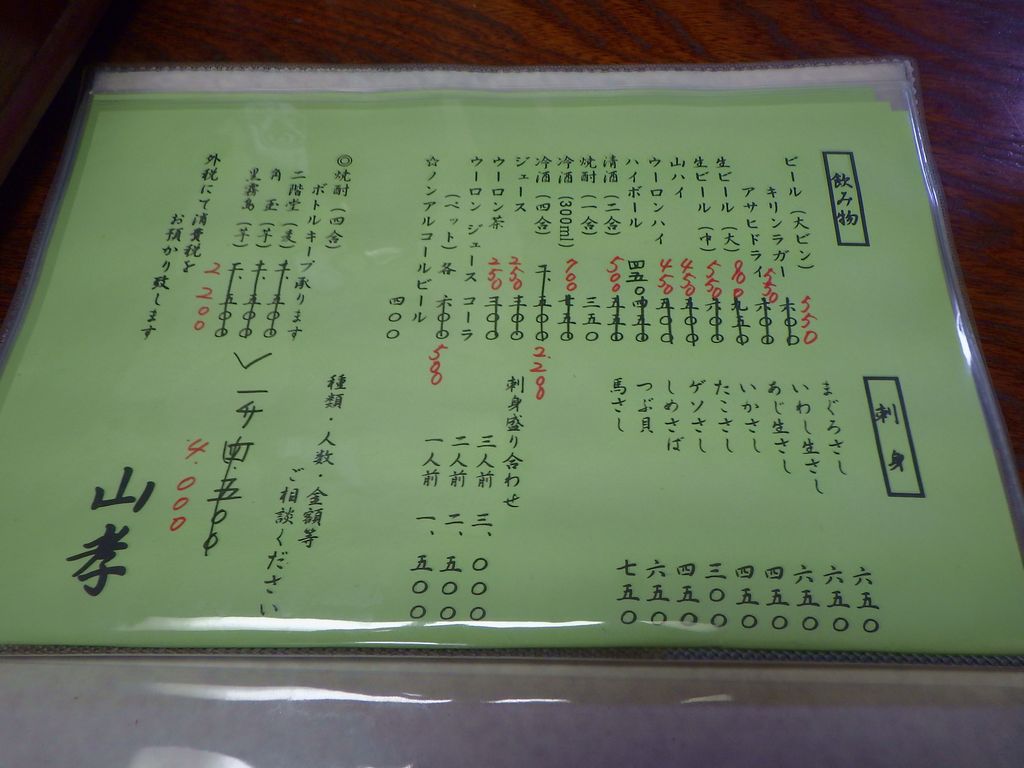 飲み物
ビール（大ビン）
キリンラガー 六〇〇 550
アサヒドライ 六〇〇 550
生ビール（大） 九五〇 800
生ビール（中） 六〇〇 550
山ハイ 五〇〇 450
ウーロンハイ 五〇〇 450
ハイボール 四五〇 四五〇
清酒（二合） 五五〇 500
焼酎（一合） 三五〇
冷酒（300ml） 七五〇 700
冷酒（四合） 五〇〇
ジュース 三〇〇 250
ウーロン茶 三〇〇 250
ウーロン ジュース コーラ
（ペット）各 六〇〇
☆ノンアルコールビール
四〇〇
◎焼酎（四合）
ボトルキープ承ります
二階堂（麦） 五〇〇
角 玉（芋） 五〇〇
黒霧島（芋） 五〇〇
2 200
外税にて消費税を
お預かり致します
刺身
まぐろさし 六五〇
いわし生さし 六五〇
あじ生さし 六五〇
いかさし 四五〇
たこさし 四五〇
ゲソさし 三〇〇
しめさば 四五〇
つぶ貝 六五〇
馬さし 七五〇
刺身盛り合わせ
三人前 三、〇〇〇
二人前 二、五〇〇
一人前 一、五〇〇
種類・人数・金額等
ご相談ください
一升 四.五〇〇
4.000
山孝